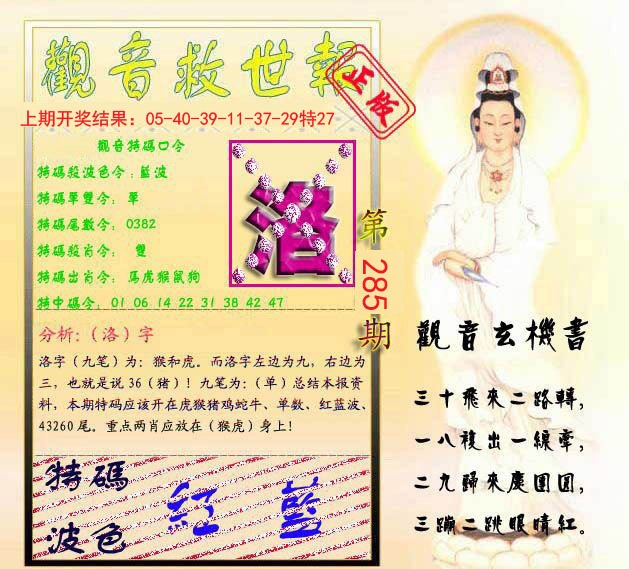 觀音救世報
正版
上期开奖结果：05-40-39-11-37-29特27
觀音特碼口令
特碼殺波色令：藍波
特碼單雙令： 單
特碼尾數令： 0382
特碼殺肖令： 雙
特碼出肖令： 馬虎猴鼠狗
特中碼令： 01 06 14 22 31 38 42 47
洛
第285期
分析:（洛）字
洛字（九笔）为：猴和虎。而洛字左边为九，右边为
三，也就是说36（猪）！九笔为：（单）总结本报资
料，本期特码应该开在虎猴猪鸡蛇牛、单数、红蓝波、
43260尾。重点两肖应放在（猴虎）身上!
特碼
波色
紅 藍
觀音玄機書
三十飛來二路轉，
一八複出一線牽，
二九歸來慶團圓，
三蹦二跳眼睛紅。